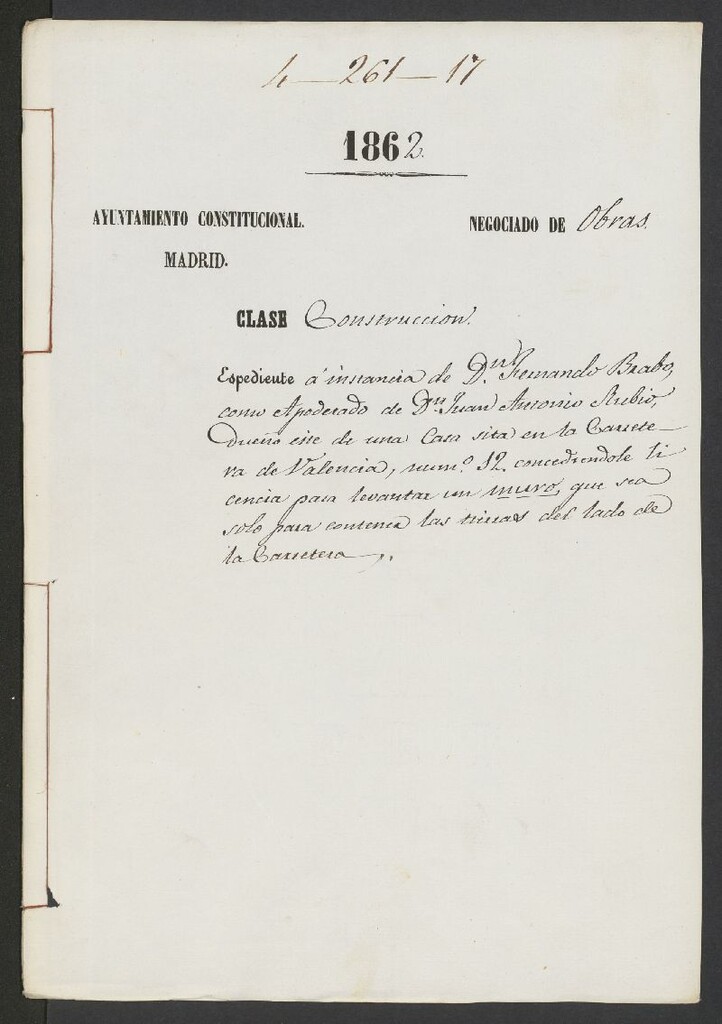 4—261—17
1862.
AYUNTAMIENTO CONSTITUCIONAL.
MADRID.
NEGOCIADO DE Obras.
CLASE Construccion.
Espediente á instancia de Dn. Fernando Brabo,
como Apoderado de Dn. Juan Antonio Rubio,
dueño este de una Casa sita en la Carrete-
ra de Valencia, num.º 12. concediendole li
cencia para levantar un muro, que sea
solo para contener las tierras del lado de
la Carretera.